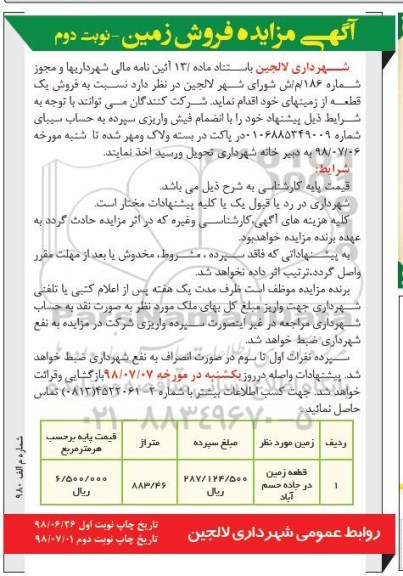 آگهی مزایده فروش زمین - نوبت دوم
شهرداری لالجین باستناد ماده ۱۳/ آئین نامه مالی شهرداریها و مجوز
شماره ۱۸۶/م/ش شورای شهر لالجین در نظر دارد نسبت به فروش یک
قطعه از زمینهای خود اقدام نماید. شرکت کنندگان می توانند با توجه به
شرایط ذیل پیشنهاد خود را با انضمام فیش واریزی سپرده به حساب سیبای
شماره ۰۱۰۶۸۸۵۳۴۹۰۰۹ در پاکت در بسته ولاک ومهر شده تا شنبه مورخه
۹۸/۰۷/۰۶ به دبیر خانه شهرداری تحویل ورسید اخذ نمایند.
شرایط:
قیمت پایه کارشناسی به شرح ذیل می باشد.
شهرداری در رد یا قبول یک یا کلیه پیشنهادات مختار است.
کلیه هزینه های آگهی،کارشناسی وغیره که در اثر مزایده حادث گردد به
عهده برنده مزایده خواهدبود.
به پیشنهاداتی که فاقد سپرده ، مشروط، مخدوش یا بعد از مهلت مقرر
واصل گردد،ترتیب اثر داده نخواهد شد.
برنده مزایده موظف است ظرف مدت یک هفته پس از اعلام کتبی یا تلفنی
شهرداری جهت واریز مبلغ کل بهای ملک مورد نظر به صورت نقد به حساب
شهرداری مراجعه در غیر اینصورت سپرده واریزی شرکت در مزایده به نفع
شهرداری ضبط خواهد شد.
سپرده نفرات اول تا سوم در صورت انصراف به نفع شهرداری ضبط خواهد
شد. پیشنهادات واصله درروز یکشنبه در مورخه ۹۸/۰۷/۰۷ بازگشایی وقرائت
خواهد شد. جهت کسب اطلاعات بیشتر با شماره ۳-۴۵۲۳۰۶۱(۰۸۱۳) تماس
حاصل نمائید.
ردیف زمین مورد نظر مبلغ سپرده متراژ قیمت پایه برحسب هرمترمربع
۱ قطعه زمین در جاده حسم آباد ۲۸۷/۱۲۴/۵۰۰ ریال ۸۸۳/۴۶ ۶/۵۰۰/۰۰۰ ریال
شماره م الف ۹۸۰
روابط عمومی شهرداری لالجین
تاریخ چاپ نوبت اول ۹۸/۰۶/۲۶
تاریخ چاپ نوبت دوم ۹۸/۰۷/۰۱
۰۲۱-۸۸۳۴۹۶۷۰-۵